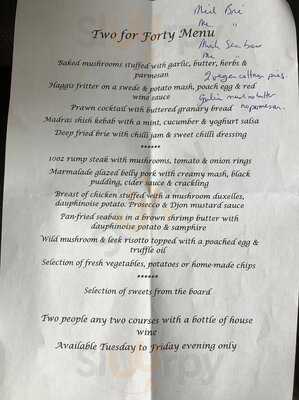 Two for Forty Menu
Baked mushrooms stuffed with garlic, butter, herbs &
parmesan
Haggis fritter on a swede & potato mash, poached egg & red
wine sauce
Prawn cocktail with buttered granary bread
Madras shish kebab with a mint, cucumber & yoghurt salsa
Deep fried brie with chilli jam & sweet chilli dressing
******
10oz rump steak with mushrooms, tomato & onion rings
Marmalade glazed belly pork with creamy mash, black
pudding, cider sauce & crackling
Breast of chicken stuffed with a mushroom duxelles,
dauphinoise potato. Prosecco & Djon mustard sauce
Pan-fried seabass in a brown shrimp butter with
dauphinoise potato & samphire
Wild mushroom & leek risotto topped with a poached egg &
truffle oil
Selection of fresh vegetables, potatoes or home-made chips
******
Selection of sweets from the board
Two people any two courses with a bottle of house
wine
Available Tuesday to Friday evening only
Brie
Me
Sea bass
Me
2 vegan cottage pies
no parmesan